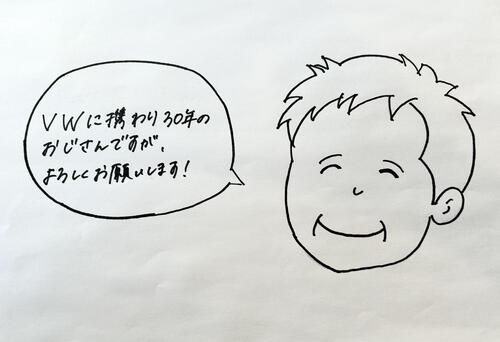 VWに携わり30年の
おじさんですが、
よろしくお願いします!